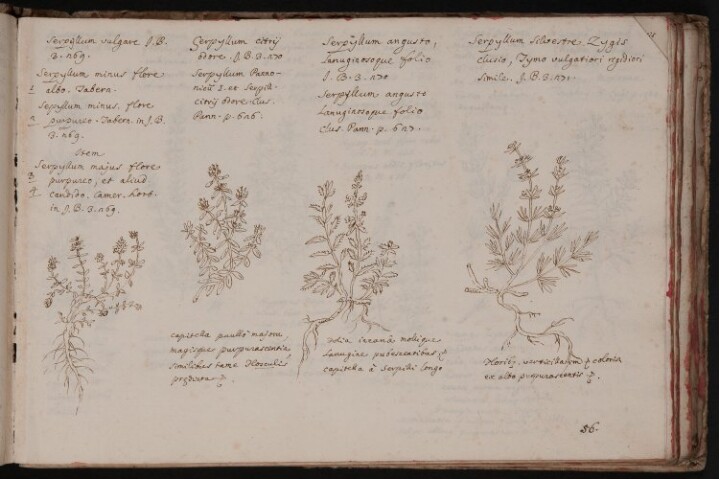 Serpyllum vulgare J.B.
3. 269.
Serpyllum minus flore
1 albo. Tabern.
Serpyllum minus, flore
2 purpureo. Tabern. in J.B.
3. 269.
Item
3 Serpyllum majus flore
purpureo, et aliud
4 candido. Camer. hort.
in J.B. 3. 269.
Serpyllum citrij
odore. J.B. 3. 270
Serpyllum Panno-
nicum et Serpill.
citrij odore Clus.
Pann. p. 626.
Serpyllum angusto,
lanuginosoque folio
J.B. 3. 270
Serpyllum angusto
lanuginosoque folio
Clus. Pann. p. 627.
Serpyllum silvestre Zygis
clusio, Tymo vulgatiori rigidiori
simile. J.B. 3. 271.
capitella paullo majora
magisque purpurascentia
similibus tamen flosculis
prædita
folia incana mollique
lanugine pubescentibus
capitella à Serpilli longo
coloris
ex albo purpurascentis
56.